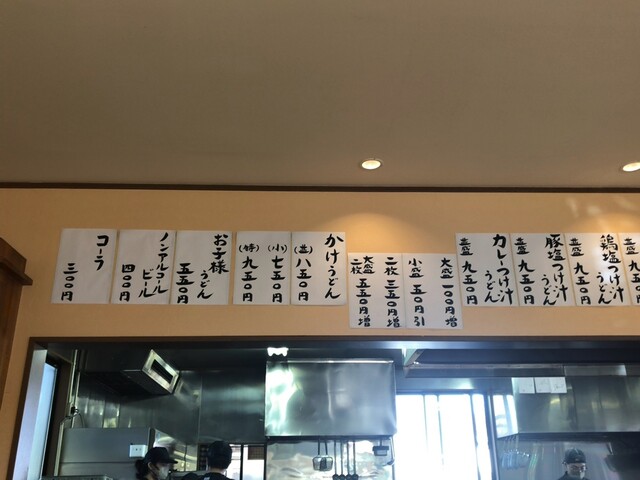 九五〇円
鶏塩つけ汁
うどん
壱盛 九五〇円
豚塩つけ汁
うどん
壱盛 九五〇円
カレーつけ汁
うどん
壱盛 九五〇円
大盛 一〇〇円増
小盛 五〇円引
二枚 三五〇円増
大盛
二枚 五五〇円増
かけうどん
(並) 八五〇円
(小) 七五〇円
(特) 九五〇円
お子様
うどん
五五〇円
ノンアルコール
ビール
四〇〇円
コーラ
三〇〇円